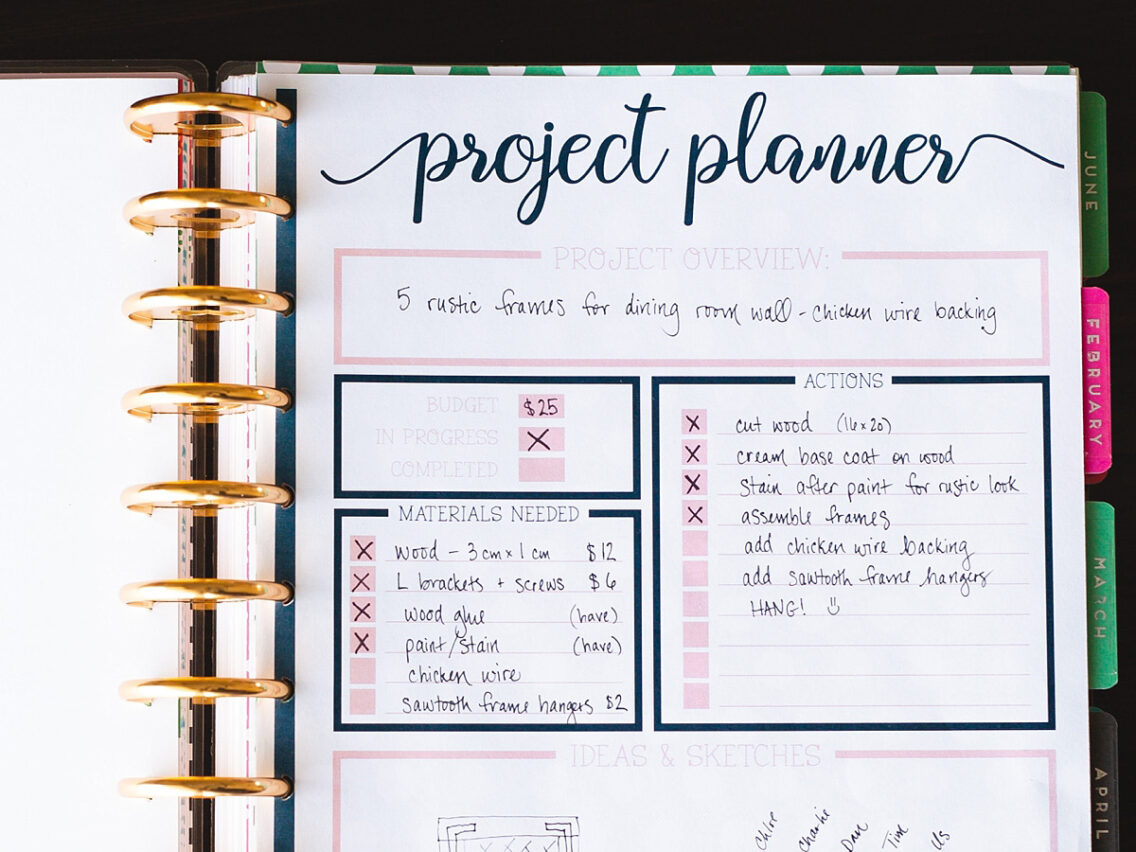 project planner
PROJECT OVERVIEW:
5 rustic frames for dining room wall - chicken wire backing
BUDGET $25
IN PROGRESS X
COMPLETED
MATERIALS NEEDED
X wood - 3cm x 1cm $12
X L brackets + screws $6
X wood glue (have)
X paint/stain (have)
chicken wire
sawtooth frame hangers $2
ACTIONS
X cut wood (16x20)
X cream base coat on wood
X stain after paint for rustic look
X assemble frames
add chicken wire backing
add sawtooth frame hangers
HANG!
IDEAS & SKETCHES
Chloe
Charlie
Dan
Tim
Us
JUNE
FEBRUARY
MARCH
APRIL